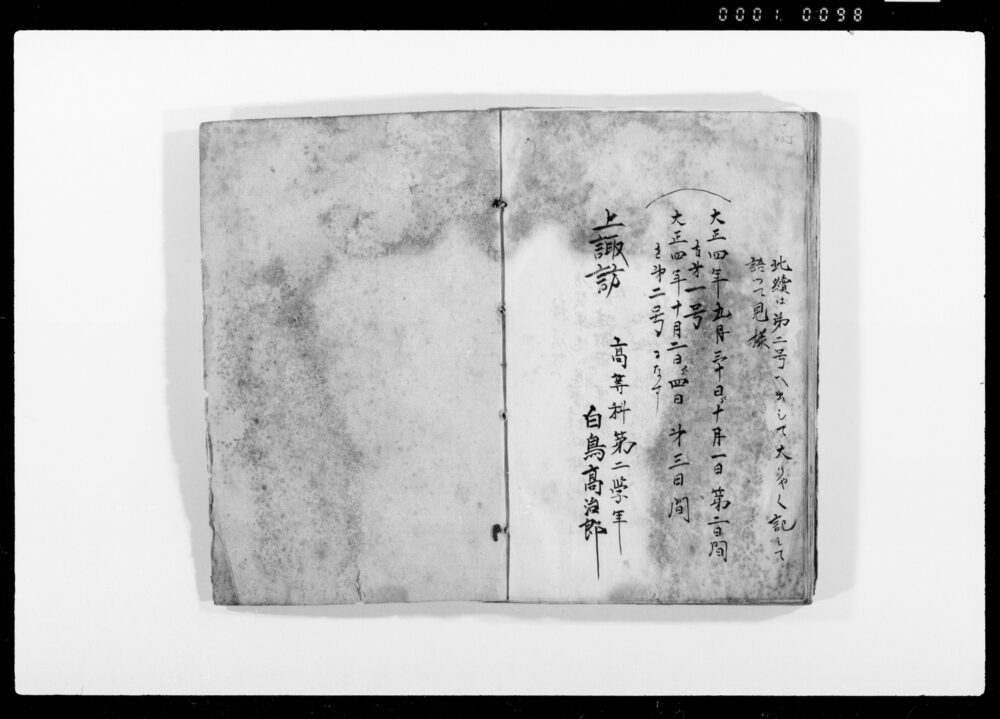 0001. 0098
此續は第二号へ出して大りやく記して
語つて見樣
大正四年九月三十日ゟ十月一日 第二日間
を第一号
大正四年十月二日ゟ四日 第三日間
を第二号
上諏訪
高等科第二学年
白鳥高治郎